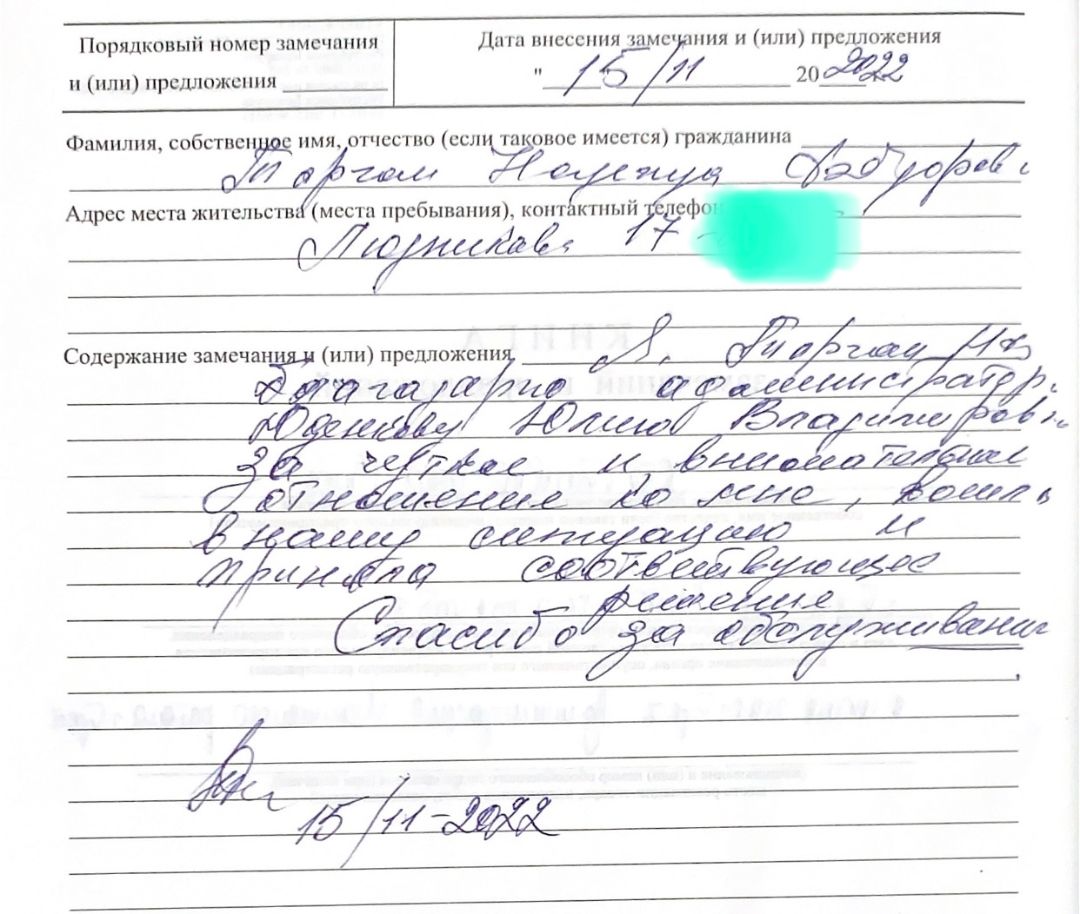 Порядковый номер замечания
и (или) предложения
Дата внесения замечания и (или) предложения
" 15/11 20 2022
Фамилия, собственное имя, отчество (если таковое имеется) гражданина
Адрес места жительства (места пребывания), контактный телефон
Людникова 17
Содержание замечания и (или) предложения Я,
Благодарю администратор
Юденкову Юлию Владимировн
за чуткое и внимательное
отношение ко мне, вошла
в нашу ситуацию и
приняла соответствующее
решение
Спасибо за обслуживание
15/11-2022